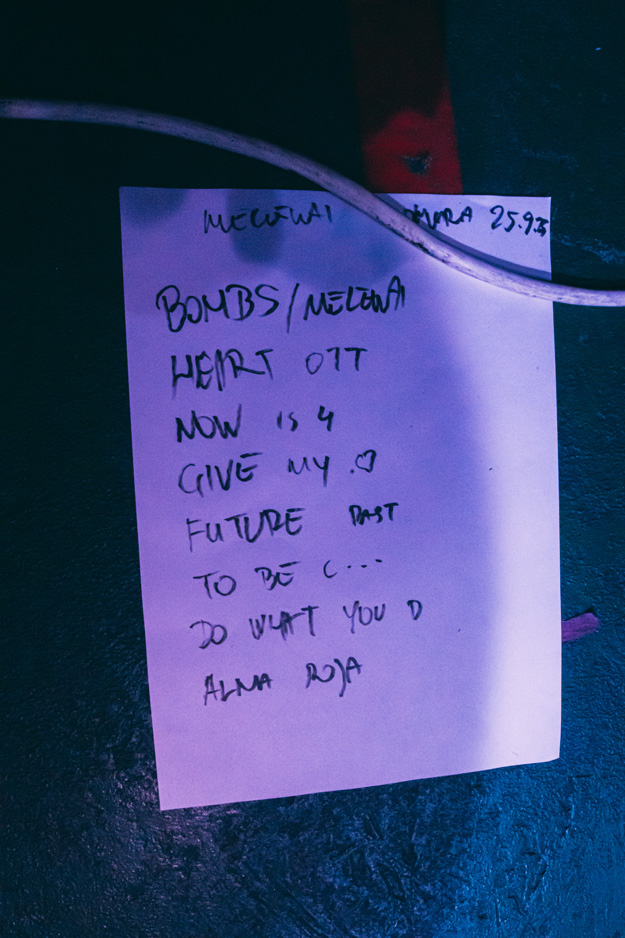 MELEWAI 25.9.
BOMBS/MELEWAI
HEART OTT
NOW IS 4
GIVE MY ♡
FUTURE PAST
TO BE C...
DO WHAT YOU D
ALMA ROJA